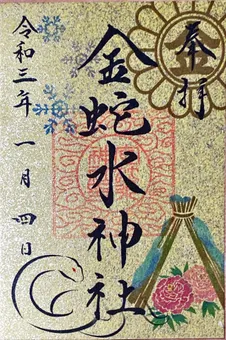 奉拝
金蛇水神社
令和三年一月四日